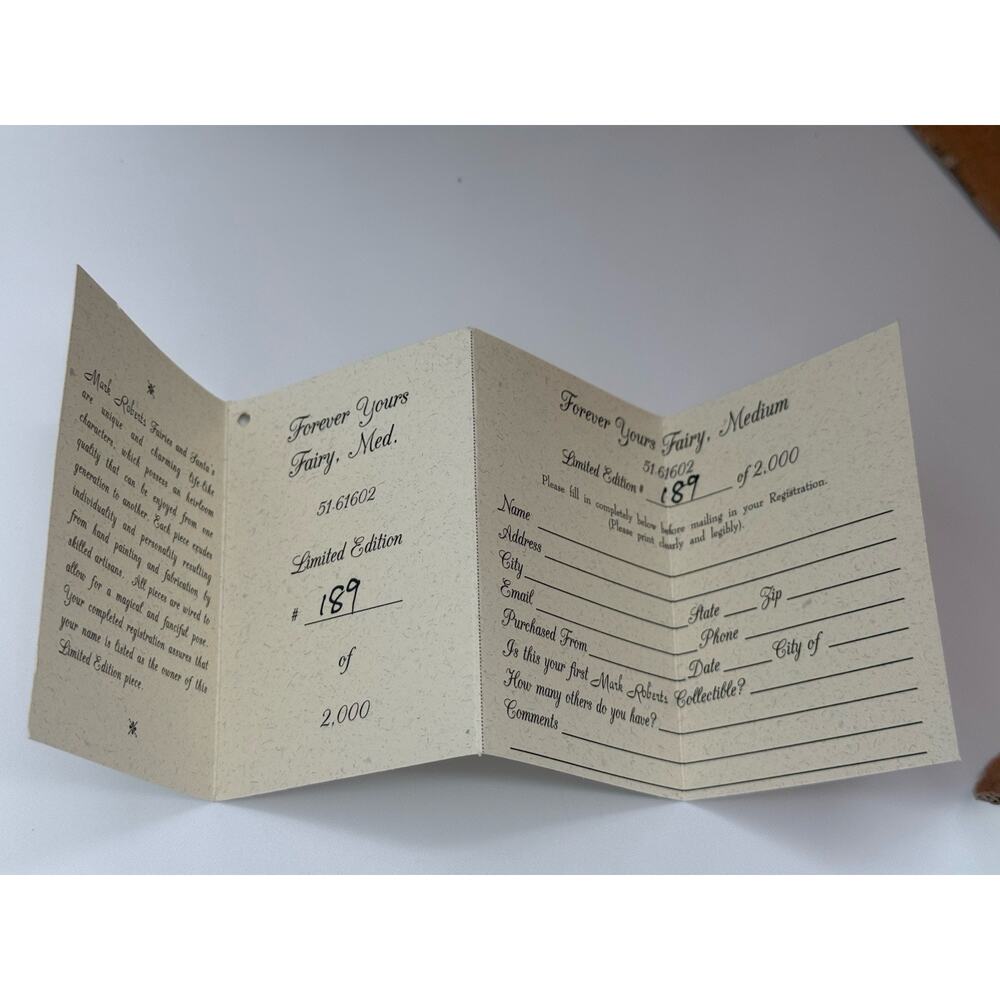 Mark Roberts Fairies and Santa's
are unique and charming life-like
characters, which possess an heirloom
quality that can be enjoyed from one
generation to another. Each piece exudes
individuality and personality resulting
from hand painting and fabrication by
skilled artisans. All pieces are wired to
allow for a magical and fanciful pose.
Your completed registration assures that
your name is listed as the owner of this
Limited Edition piece.
Forever Yours
Fairy, Med.
51-61602
Limited Edition
# 189
of
2,000
Forever Yours Fairy, Medium
51-61602
Limited Edition # 189 of 2,000
Please fill in completely below before mailing in your Registration.
(Please print clearly and legibly).
Name
Address
City State Zip
Email Phone
Purchased From Date City of
Is this your first Mark Roberts Collectible?
How many others do you have?
Comments